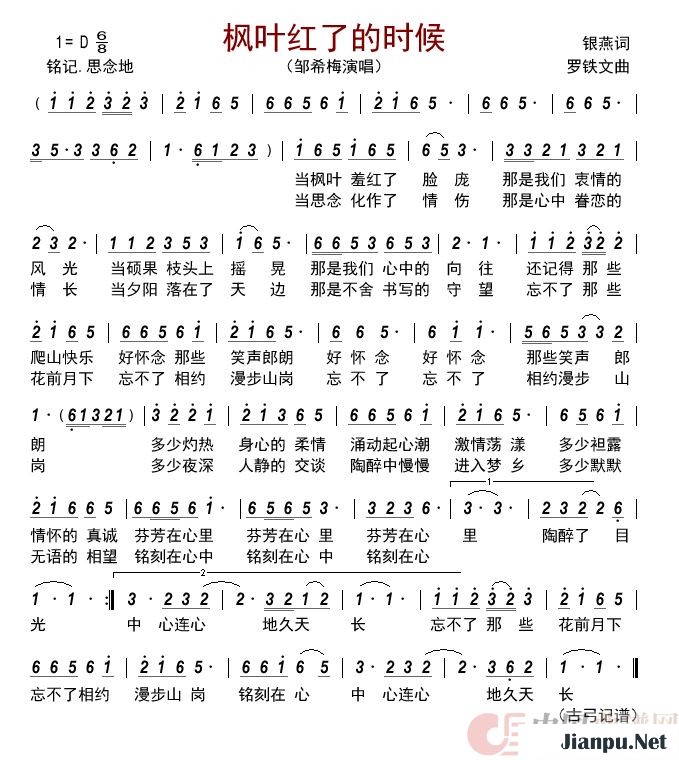 枫叶红了的时候
1= D 6/8
银燕词
铭记.思念地
（邹希梅演唱）
罗铁文曲
( 1 1 2 3 2 3 | 2 1 6 5 | 6 6 5 6 6 1 | 2 1 6 5 |
3 5· 3 3 6 2 | 1· 6 1 2 3 ) | 1 6 5 1 6 5 | 6 5 3· | 3 3 2 1 3 2 1 |
当枫叶 羞红了 脸 庞 那是我们 衷情的
当思念 化作了 情 伤 那是心中 眷恋的
2 3 2· | 1 1 2 3 5 3 | 1 6 5· | 6 6 5 3 6 5 3 | 2 1 2· | 1 1 2 3 2 2 |
风 光 当硕果 枝头上 摇 晃 那是我们 心中的 向 往 还记得 那 些
情 长 当夕阳 落在了 天 边 那是不舍 书写的 守 望 忘不了 那 些
2 1 6 5 | 6 6 5 6 6 1 | 2 1 6 5 | 6 3 6 | 6 3 6 | 5 6 5 3 3 2 |
爬山快乐 好怀念 那些 笑声郎朗 好 怀念 好 怀念 那些笑声 郎
花前月下 忘不了 相约 漫步山岗 忘不 了 忘不 了 相约漫步 山
1· ( 6 1 3 2 1 ) | 3 2 2 1 | 2 1 3 6 5 | 6 3 6 6 5 | 6 1 6 2 | 3 2 2 1 |
朗 多少灼热 身心的 柔情 涌动起心潮 激情荡漾 多少袒露
岗 多少夜深 人静的 交谈 陶醉中慢慢 进入梦乡 多少默默
2 1 6 5 | 6 6 5 6 1 | 6 5 6 5 3 | 6 6 5 6 2 | 3· 3· | 2 2 2 6 |
1
情怀的 真诚 芬芳在心里 芬芳在心里 芬芳在心 里 陶醉了 目
无语的 相望 铭刻在心中 铭刻在心 中 铭刻在心
1· 1· :| 3· 2 3 2 | 2· 3 2 3 | 1· 1· | 1 1 2 3 2 3 | 2 1 6 5 |
2
光 中 心连心 地久天 长 忘不了 那 些 花前月下
6 6 5 6 1 | 2 1 6 5 | 6 6 5 6 2 | 3· 2 3 2 | 2· 3 2 3 | 1· 1· ||
忘不了相约 漫步山 岗 铭刻在 心 中 心连心 地久天 长
（古弓记谱）
Jianpu.Net